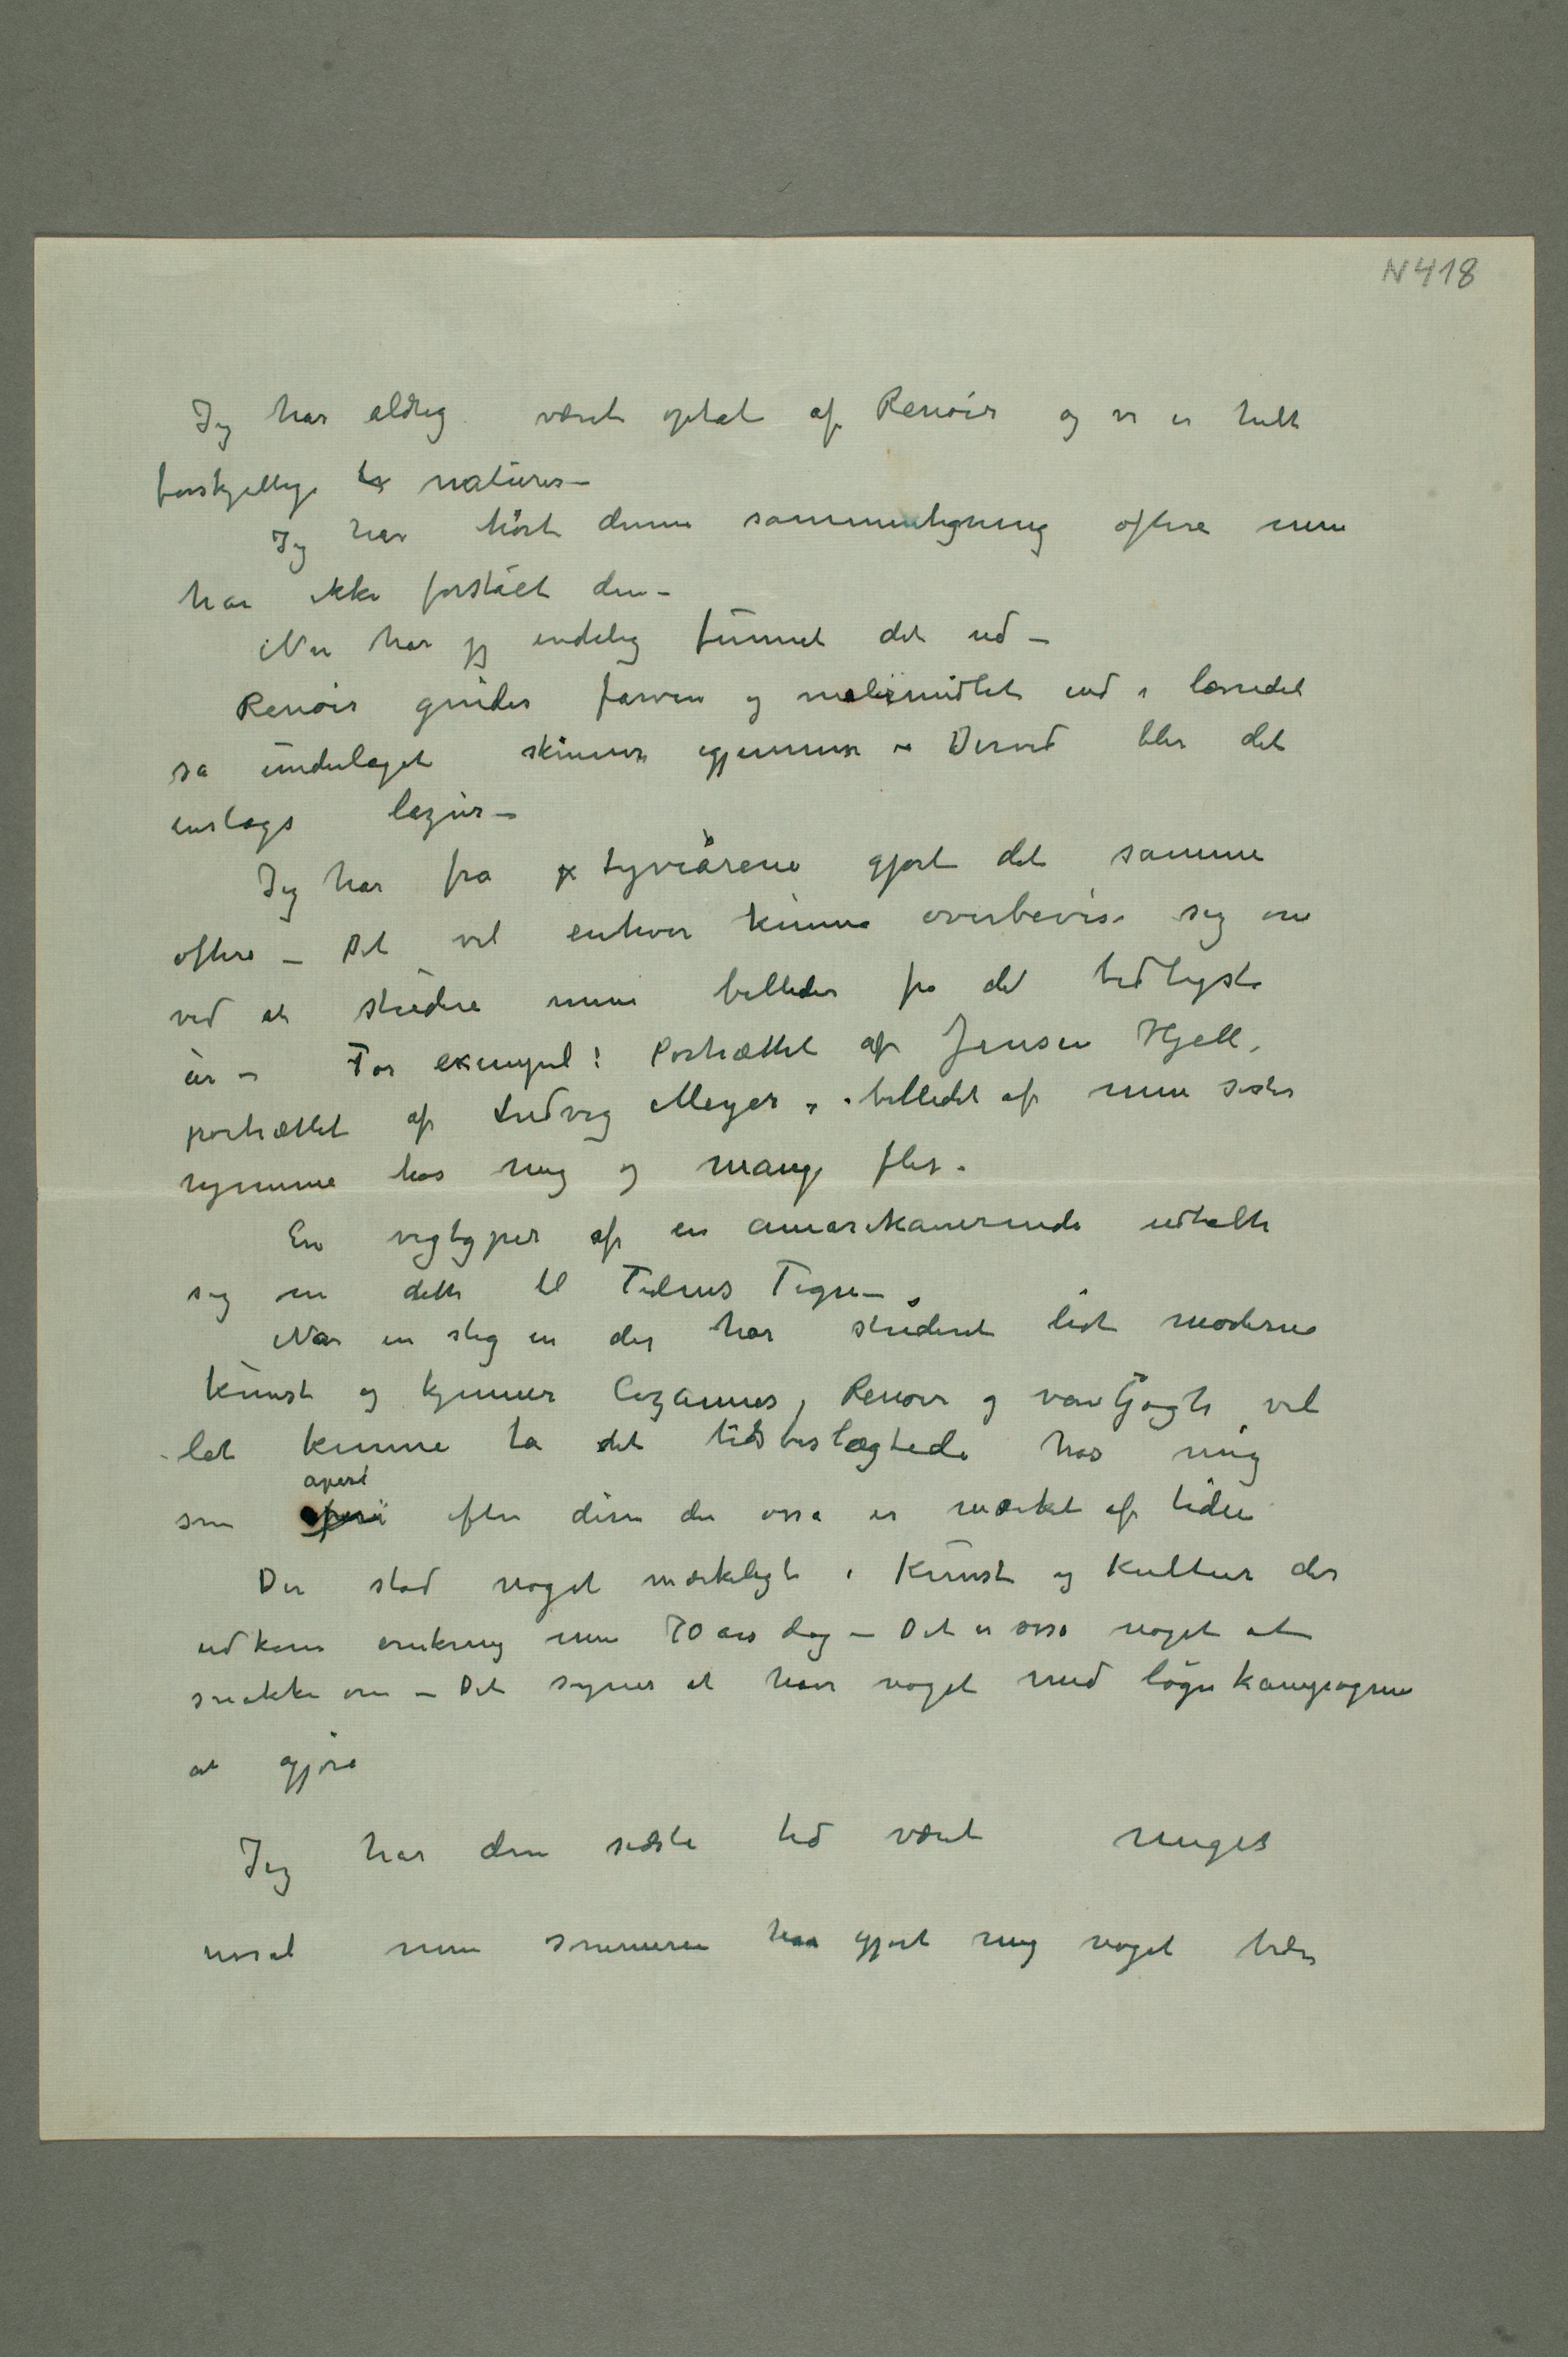 N 418
Jeg har aldrig været optat af Renoir og vi er helt
forskjellige naturer –
Jeg har hørt denne sammenligning oftere men
har ikke forstået den –
Nu har jeg endelig funnet det ud –
Renoir gnider farven og malemidlet ind i lærredet
så underlaget skinner igjennem – Derved blir det
enslags lazur –
Jeg har fra tyveårene gjort det samme
oftere – Det vil enhver kunne overbevise sig om
ved at studere mine billeder fra det tidligste
år – For exempel: Portrættet af Jensen Hjell,
portrættet af Ludvig Meyer, billedet af min søster
hjemme hos mig og mange fler.
En vigtigper af en amerikanerinde udtalte
sig om dette til Tidens Tegn –
Når en slig en der har studeret lidt moderne
kunst og kjenner Cezannes, Renoir og van Gogh vil
let kunne ta det tidsbeslægtede hos mig
som aperi efter disse der også er mærket af tiden
Der stod noget mærkeligt i Kunst og Kultur der
udkom omkring min 70 års dag – Det er også noget at
snakke om – Det synes at have noget med løgnkampagnen
at gjøre
Jeg har den sidste tid været meget
ussel men sommeren har gjort mig noget bedre